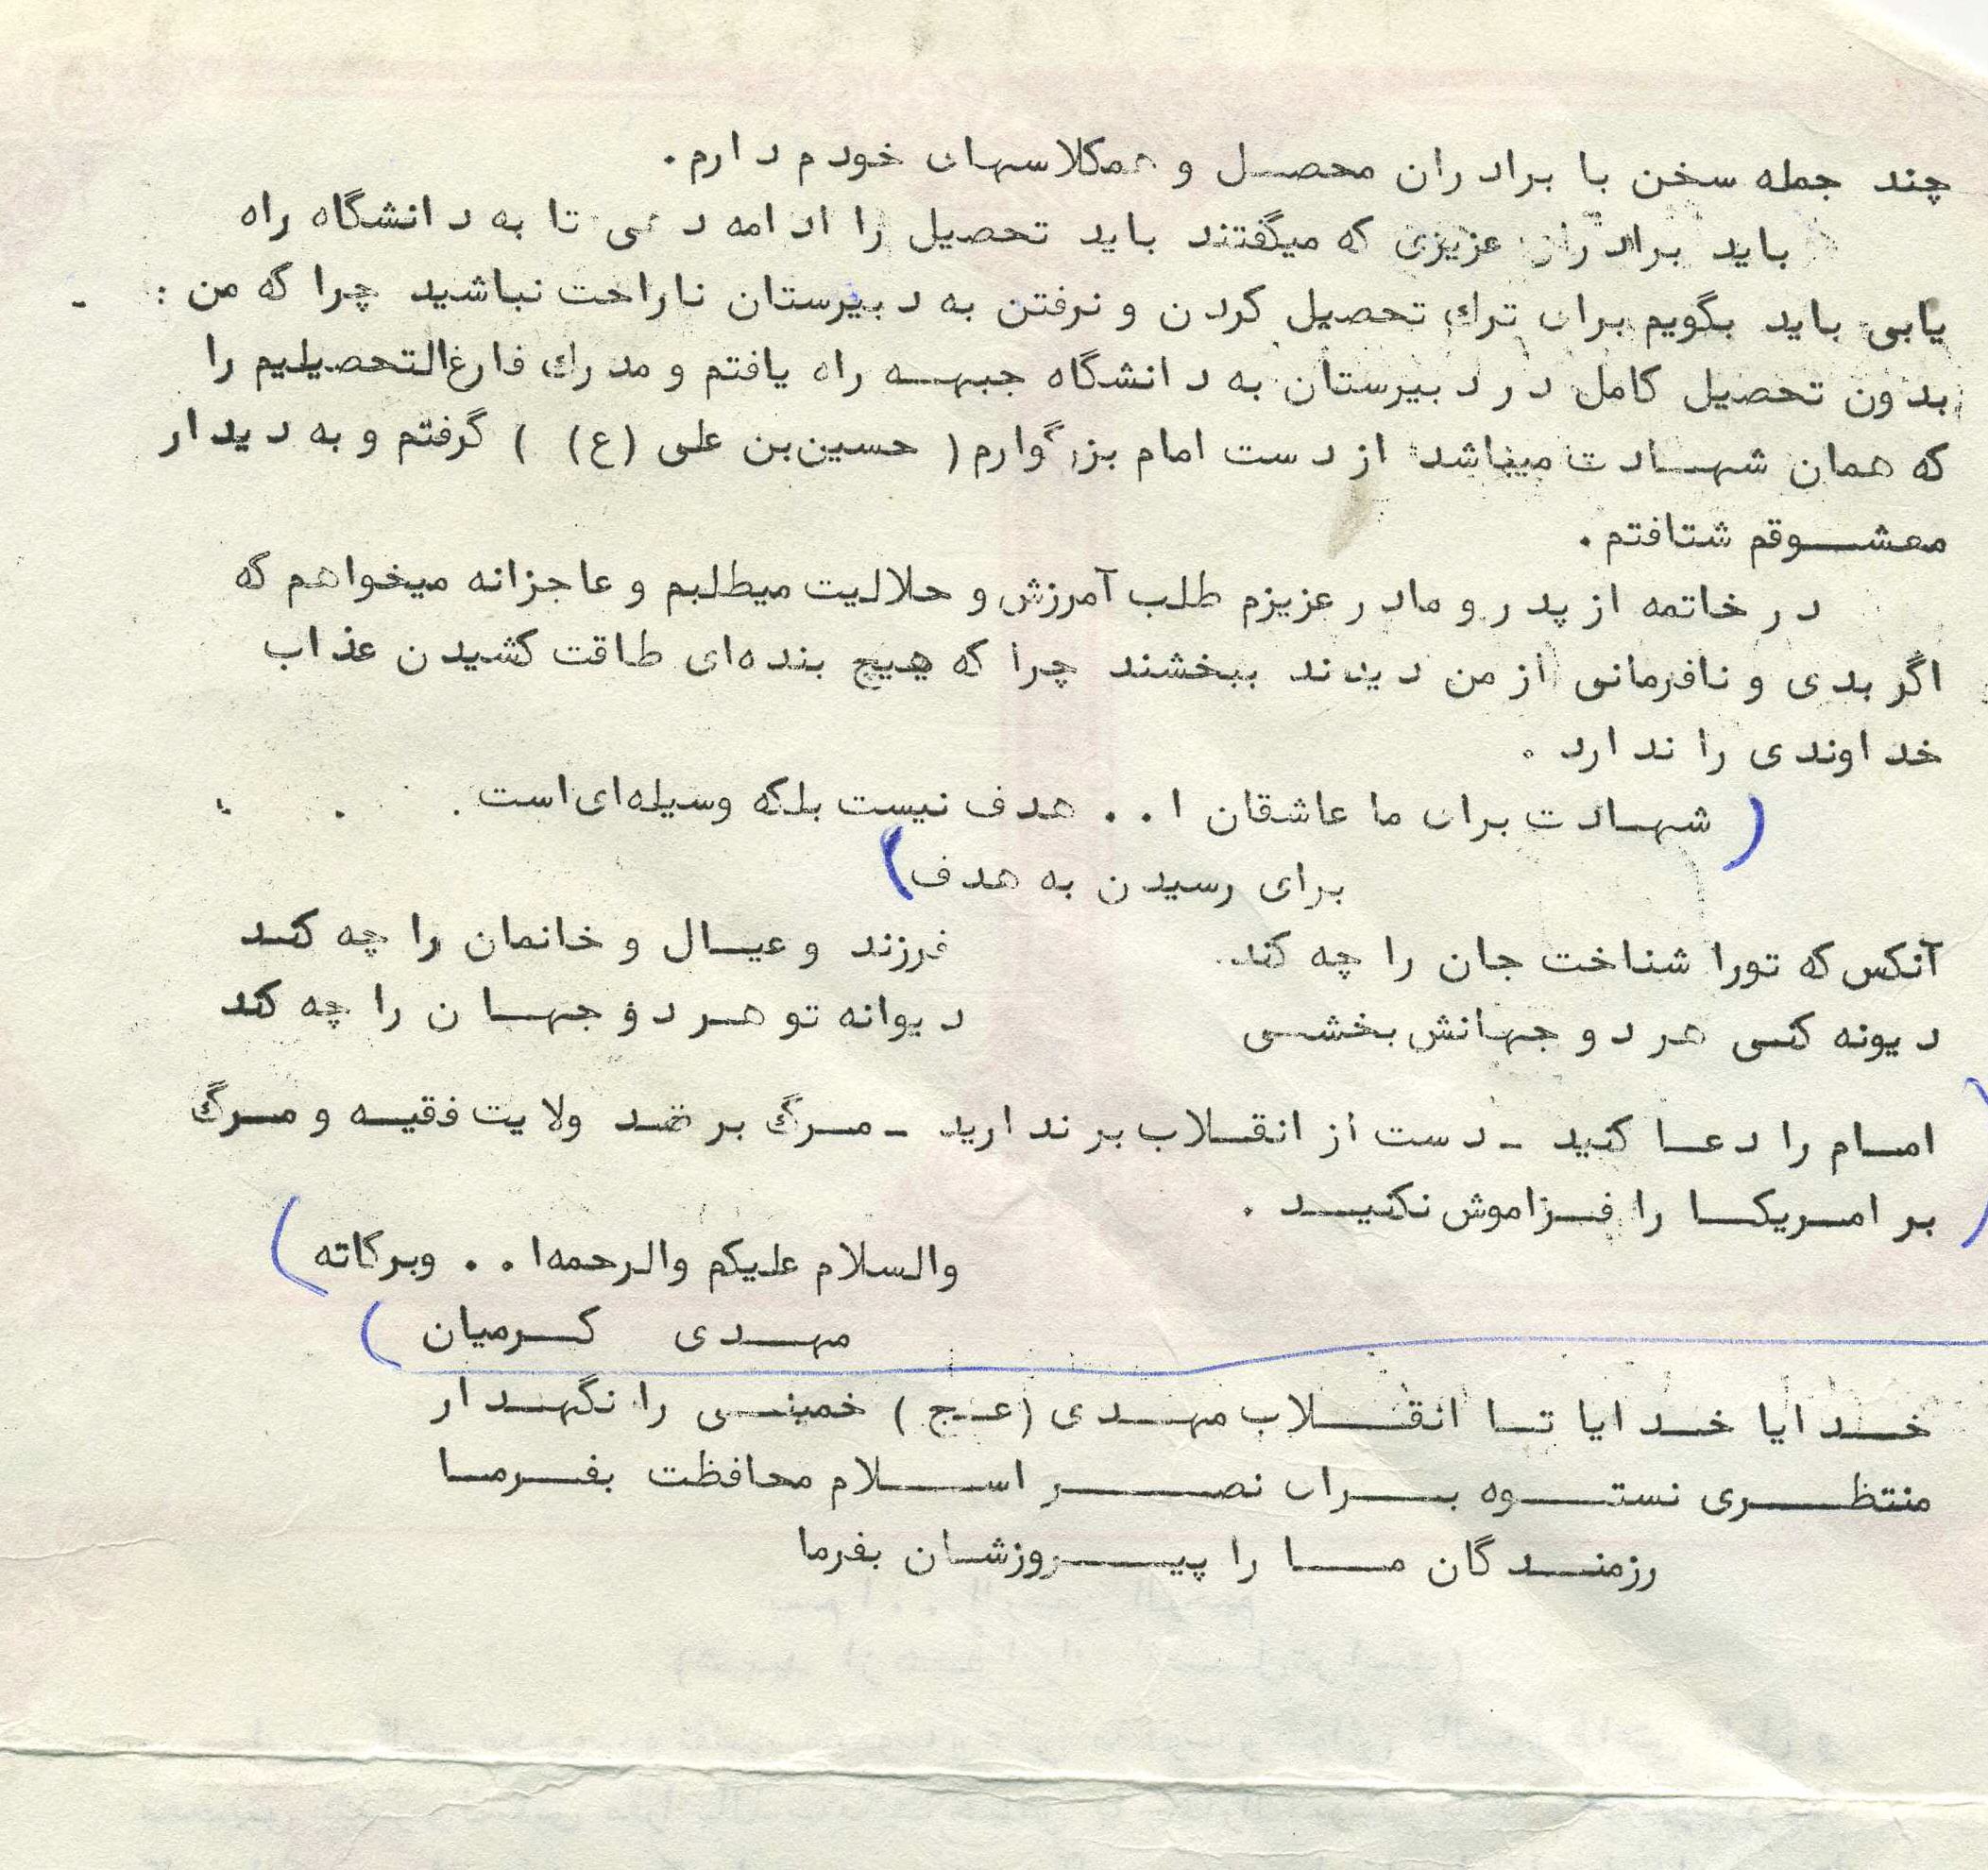 چند جمله سخن با برادران محصل و همکلاسیهای خودم دارم.
باید برادران عزیزی که میگفتند باید تحصیل را ادامه دهی تا به دانشگاه راه
یابی باید بگویم برای ترك تحصیل کردن و نرفتن به دبیرستان ناراحت نباشید چرا که من :
بدون تحصیل کامل در دبیرستان به دانشگاه جبهه راه یافتم و مدرك فارغ‌التحصیلیم را
که همان شهادت میباشد از دست امام بزرگوارم ( حسین‌بن علی (ع) ) گرفتم و به دیدار
معشوقم شتافتم.
در خاتمه از پدر و مادر عزیزم طلب آمرزش و حلالیت میطلبم و عاجزانه میخواهم که
اگر بدی و نافرمانی از من دیدند ببخشند چرا که هیچ بنده‌ای طاقت کشیدن عذاب
خداوندی را ندارد.
( شهادت برای ما عاشقان ا.. هدف نیست بلکه وسیله‌ای است
برای رسیدن به هدف )
آنکس که تورا شناخت جان را چه کند فرزند و عیال و خانمان را چه کند
دیونه کنی هر دو جهانش بخشی دیوانه تو هر دو جهان را چه کند
امام را دعا کنید - دست از انقلاب برندارید - مرگ بر ضد ولایت فقیه و مرگ
بر امریکا را فراموش نکنید.
والسلام علیکم والرحمه‌ا.. وبرکاته
مهدی کرمیان
خدایا خدایا تا انقلاب مهدی (عج) خمینی را نگهدار
منتظری نستوه برای نصر اسلام محافظت بفرما
رزمندگان ما را پیروزشان بفرما